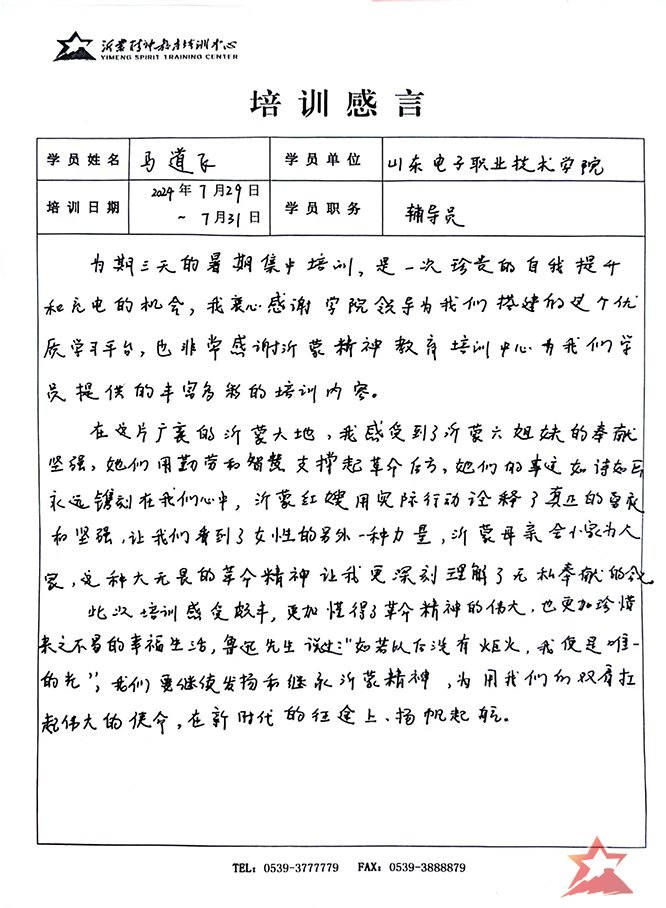 沂蒙精神教育培训中心
YIMENG SPIRIT TRAINING CENTER
培训感言
学员姓名 马道飞 学员单位 山东电子职业技术学院
培训日期 2024年7月29日 ~ 7月31日 学员职务 辅导员
为期三天的暑期集中培训，是一次珍贵的自我提升
和充电的机会，我衷心感谢学院领导为我们搭建的这个优
质学习平台，也非常感谢沂蒙精神教育培训中心为我们学
员提供的丰富多彩的培训内容。
在这片广袤的沂蒙大地，我感受到了沂蒙六姐妹的奉献
坚强，她们用勤劳和智慧支撑起革命后方，她们的事迹如诗如画
永远镌刻在我们心中，沂蒙红嫂用实际行动诠释了真正的勇敢
和坚强，让我们看到了女性的另外一种力量，沂蒙母亲舍小家为人
家，这种大无畏的革命精神让我更深刻理解了无私奉献的含义
此次培训感受颇丰，更加懂得了革命精神的伟大，也更加珍惜
来之不易的幸福生活，鲁迅先生说过："如若以后没有炬火，我便是唯一
的光"，我们要继续发扬和继承沂蒙精神，为用我们的双肩扛
起伟大的使命，在新时代的征途上、扬帆起航。
TEL：0539-3777779 FAX：0539-3888879